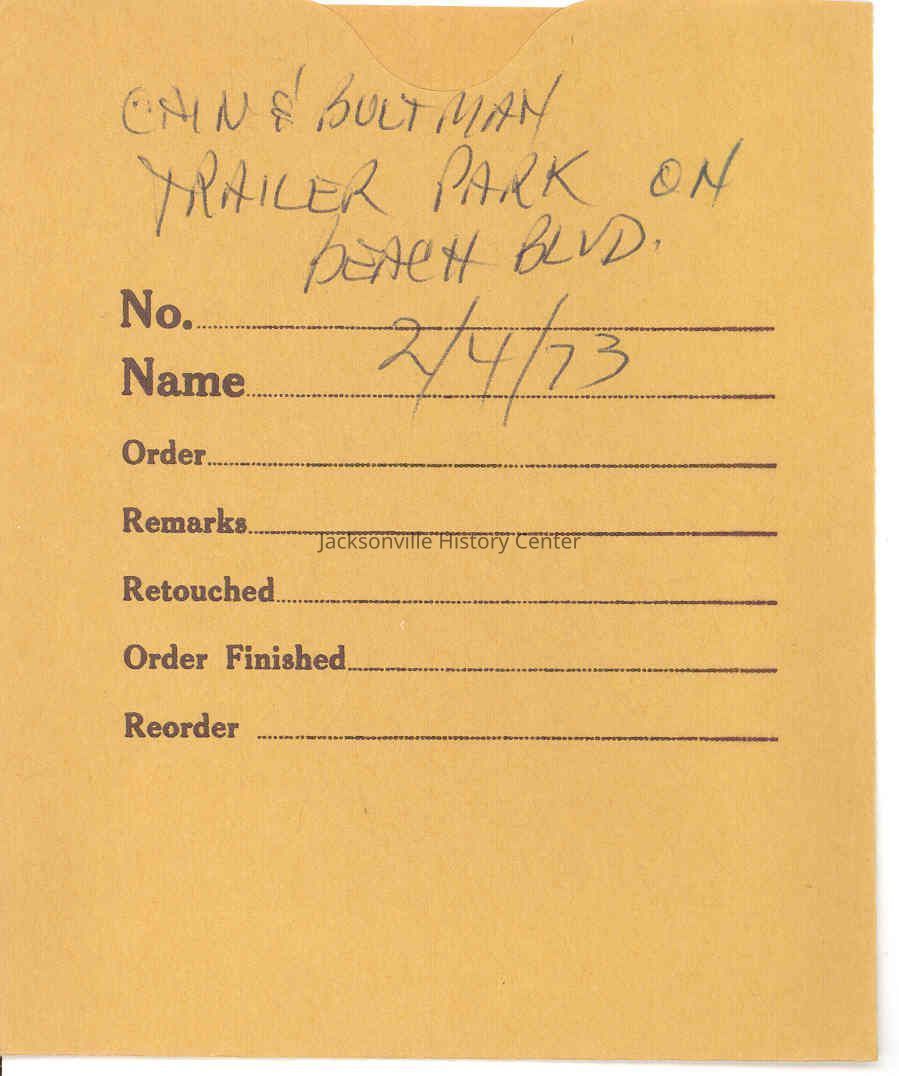 CAIN & BULTMAN
TRAILER PARK ON
BEACH BLVD.
No.
2/4/73
Name
Order
Remarks
Jacksonville History Center
Retouched
Order Finished
Reorder